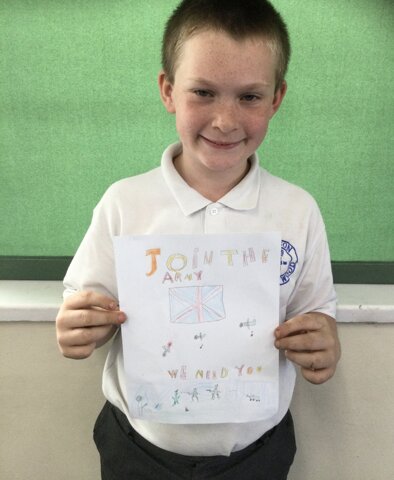 JOIN THE
ARMY
WE NEED YOU